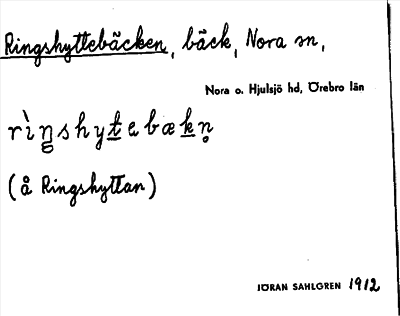 Ringshyttebäcken, bäck, Nora sn,
Nora o. Hjulsjö hd, Örebro län
rìŋshytebækn̥
(å Ringshyttan)
JÖRAN SAHLGREN 1912